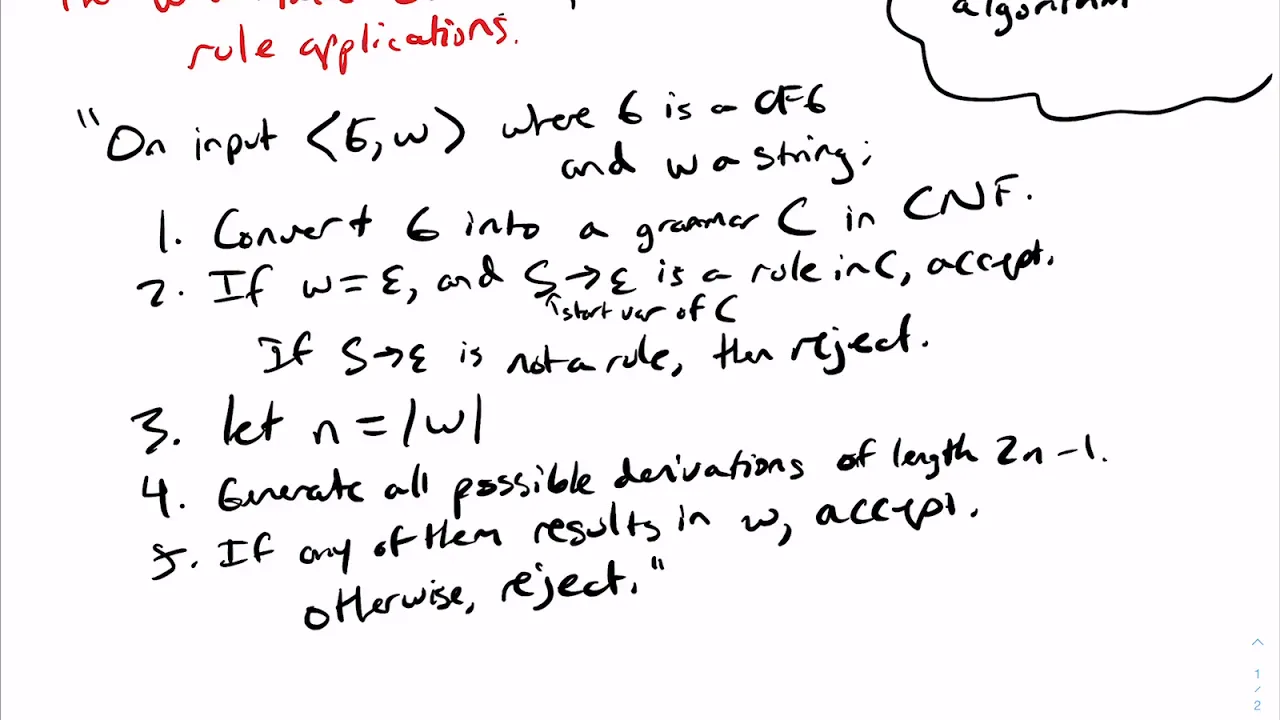 rule applications.
algorithm
"On input <G, w> where G is a CFG
and w a string:
1. Convert G into a grammar C in CNF.
2. If w = ε, and S → ε is a rule in C, accept.
↑start var of C
If S → ε is not a rule, then reject.
3. let n = |w|
4. Generate all possible derivations of length 2n-1.
5. If any of them results in w, accept.
otherwise, reject."
1
/
2